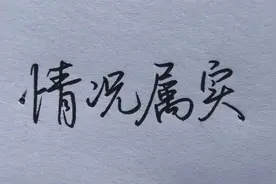 情况属实